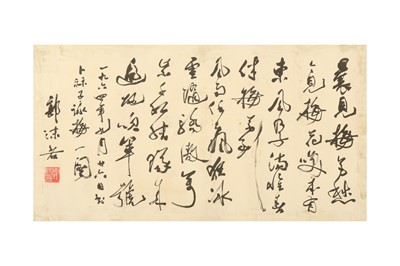 曩見梅花愁
今見梅花笑本有
東風孕滿懷春
伴梅花到
風雨任瘋狂冰
雪隨驕傲萬
紫千紅結隊來
遍地吹軍號
一九六四年月廿六日書
卜祘子詠梅一闋
郭沫若